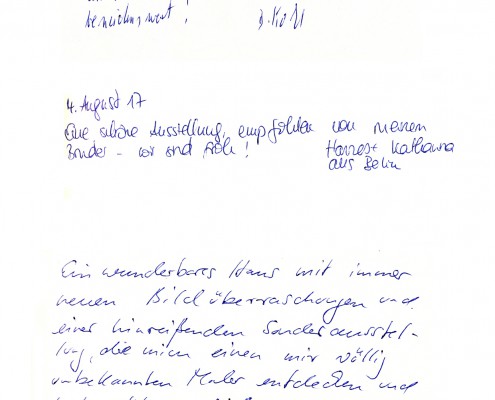 !
4. August 17
Eine schöne Ausstellung, empfohlen von meinem
Bruder – wir sind froh! Hannes + Katharina
aus Berlin
Ein wunderbares Haus mit immer
neuen Bildüberraschungen und
einer hinreißenden Sonderausstel-
lung, die mich einen mir völlig
unbekannten Maler entdecken und